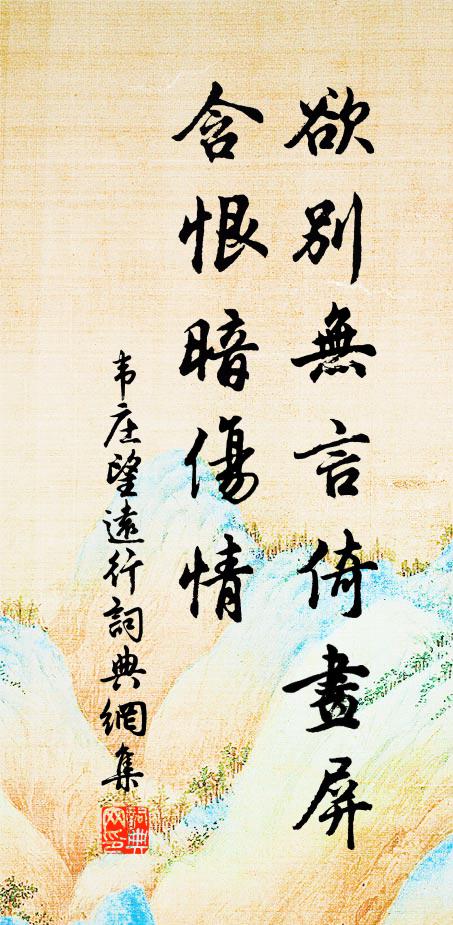 欲別無言倚畫屏
含恨暗傷情
韦庄望遠行詞典網集
詞典